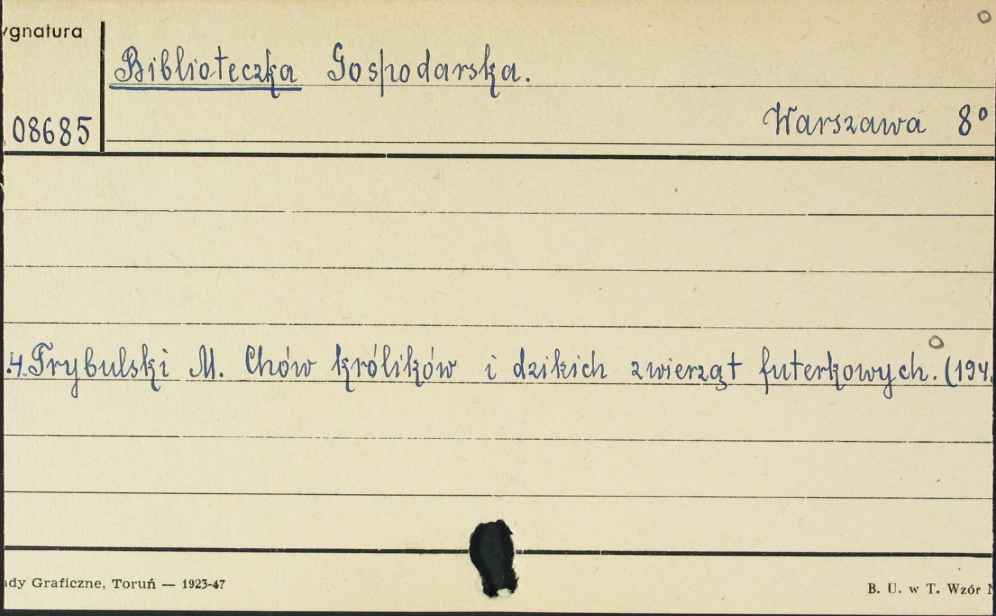 ygnatura
Biblioteczka Gospodarska.
Warszawa 8°
08685
.4. Trybulski M. Chów królików i dzikich zwierząt futerkowych. (194
ady Graficzne, Toruń — 1923-47
B. U. w T. Wzór N